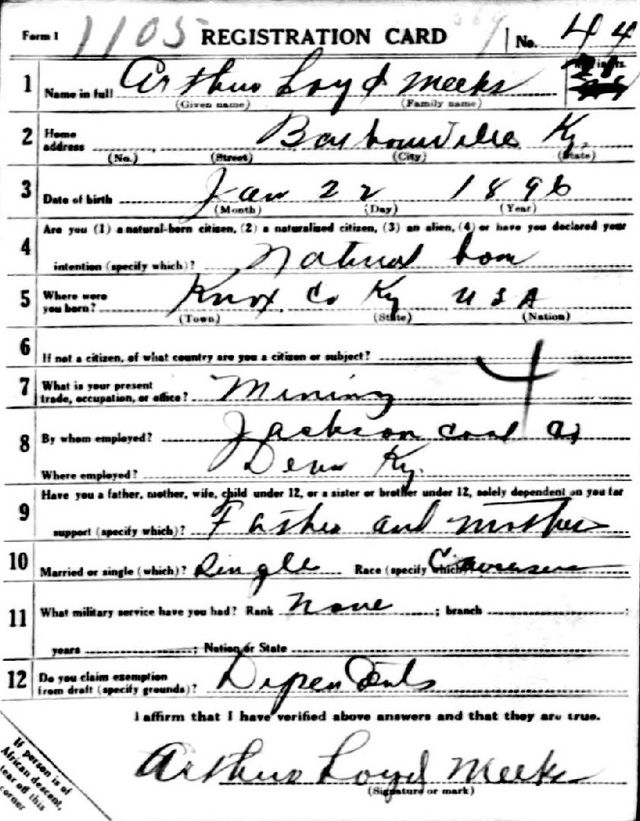 Form 1 1105 REGISTRATION CARD No. 44
1 Name in full Arthur Loyd Meeks
(Given name) (Family name)
2 Home address Barbourville Ky.
(No.) (Street) (City) (State)
3 Date of birth Jan 22 1896
(Month) (Day) (Year)
4 Are you (1) a natural-born citizen, (2) a naturalized citizen, (3) an alien, (4) or have you declared your
intention (specify which)? Natural born
5 Where were you born? Knox Co Ky USA
(Town) (State) (Nation)
6 If not a citizen, of what country are you a citizen or subject?
7 What is your present trade, occupation, or office? Mining
8 By whom employed? Jackson coal Co
Where employed? Ky.
9 Have you a father, mother, wife, child under 12, or a sister or brother under 12, solely dependent on you for
support (specify which)? Father and mother
10 Married or single (which)? Single Race (specify which)?
11 What military service have you had? Rank None ; branch ;
years ; Nation or State
12 Do you claim exemption from draft (specify grounds)? Dependents
I affirm that I have verified above answers and that they are true.
Arthur Loyd Meeks
(Signature or mark)
If person is of
African descent,
tear off this
corner